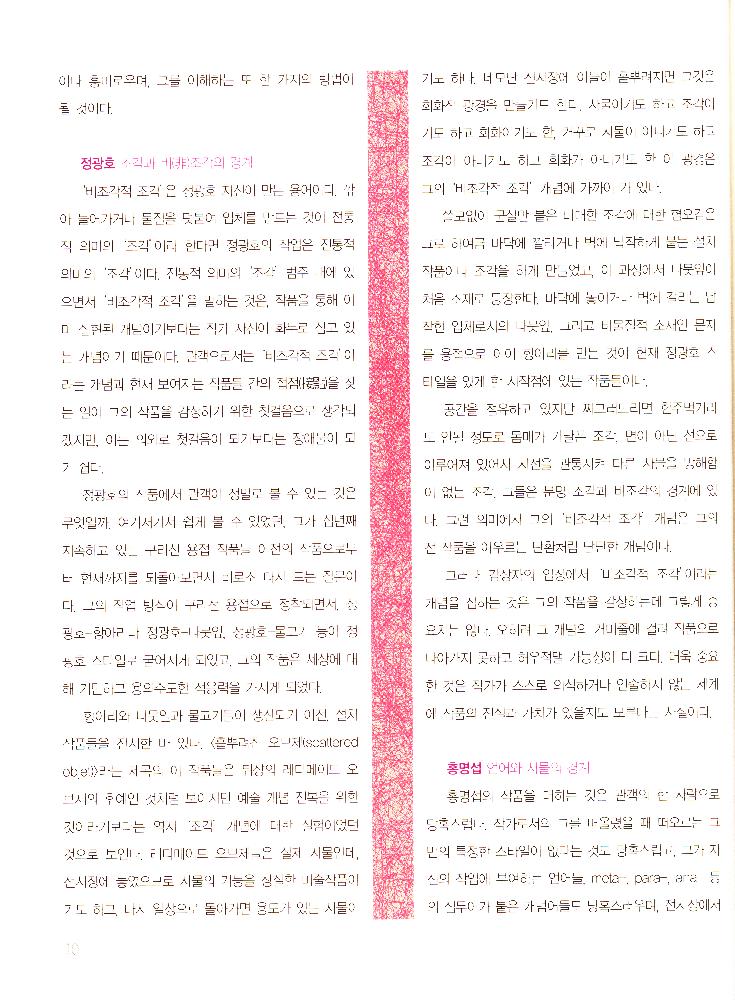 이나 흥미로우며, 그를 이해하는 또 한 가지의 방법이
될 것이다.
정광호 조각과 비(非)조각의 경계
'비조각적 조각'은 정광호 자신이 만든 용어이다. 깎
아 들어가거나 물질을 덧붙여 입체를 만드는 것이 전통
적 의미의 '조각'이라 한다면 정광호의 작업은 전통적
의미의 '조각'이다. 전통적 의미의 '조각' 범주 내에 있
으면서 '비조각적 조각'을 말하는 것은, 작품을 통해 이
미 실현된 개념이기보다는 작가 자신이 화두로 삼고 있
는 개념이기 때문이다. 관객으로서는 '비조각적 조각'이
라는 개념과 현재 보여지는 작품들 간의 접점(接點)을 찾
는 일이 그의 작품을 감상하기 위한 첫걸음으로 생각되
겠지만, 이는 의외로 첫걸음이 되기보다는 장애물이 되
기 쉽다.
정광호의 작품에서 관객이 정말로 볼 수 있는 것은
무엇일까. 여기저기서 쉽게 볼 수 있었던, 그가 십년째
지속하고 있는 구리선 용접 작품들 이전의 작품으로부
터 현재까지를 되돌아보면서 비로소 다시 드는 질문이
다. 그의 작업 방식이 구리선 용접으로 정착되면서, 정
광호-항아리나 정광호-나뭇잎, 정광호-물고기 등이 정
광호 스타일로 굳어지게 되었고, 그의 작품은 세상에 대
해 기민하고 용의주도한 적응력을 가지게 되었다.
항아리와 나뭇잎과 물고기들이 생산되기 이전, 설치
작품들을 전시한 바 있다. 〈흩뿌려진 오브제(scattered
objet)〉라는 제목의 이 작품들은 뒤샹의 레디메이드 오
브제의 후예인 것처럼 보이지만 예술 개념 전복을 위한
것이라기보다는 역시 '조각' 개념에 대한 실험이었던
것으로 보인다. 레디메이드 오브제들은 실제 사물인데,
전시장에 놓였으므로 사물의 기능을 상실한 미술작품이
기도 하고, 다시 일상으로 돌아가면 용도가 있는 사물이
기도 하다. 네모난 전시장에 이들이 흩뿌려지면 그것은
회화적 광경을 만들기도 한다. 사물이기도 하고 조각이
기도 하고 회화이기도 한, 거꾸로 사물이 아니기도 하고
조각이 아니기도 하고 회화가 아니기도 한 이 광경은
그의 '비조각적 조각' 개념에 가까이 가 있다.
쓸모없이 군살만 붙은 비대한 조각에 대한 혐오감은
그로 하여금 바닥에 깔리거나 벽에 납작하게 붙는 설치
작품이나 조각을 하게 만들었고, 이 과정에서 나뭇잎이
처음 소재로 등장한다. 바닥에 놓이거나 벽에 걸리는 납
작한 입체로서의 나뭇잎, 그리고 비물질적 소재인 문자
를 용접으로 이어 항아리를 만든 것이 현재 정광호 스
타일을 있게 한 시작점에 있는 작품들이다.
공간을 점유하고 있지만 찌그러뜨리면 한주먹거리
도 안될 정도로 몸매가 가날픈 조각, 면이 아닌 선으로
이루어져 있어서 시선을 관통시켜 다른 사물을 방해함
이 없는 조각. 그들은 분명 조각과 비조각의 경계에 있
다. 그런 의미에서 그의 '비조각적 조각' 개념은 그의
전 작품을 아우르는 탄환처럼 단단한 개념이다.
그러나 감상자의 입장에서 '비조각적 조각'이라는
개념을 심하는 것은 그의 작품을 감상하는데 그렇게 중
요치는 않다. 오히려 그 개념의 거미줄에 걸려 작품으로
나아가지 못하고 허우적댈 가능성이 더 크다. 더욱 중요
한 것은 작가가 스스로 의식하거나 언술하지 않는 세계
에 작품의 진실과 가치가 있을지도 모른다는 사실이다.
홍명섭 언어와 사물의 경계
홍명섭의 작품을 대하는 것은 관객의 한 사람으로
당혹스럽다. 작가로서의 그를 떠올렸을 때 떠오르는 그
만의 특정한 스타일이 없다는 것도 당혹스럽고, 그가 자
신의 작업에 부여하는 언어들, meta-, para-, ana- 등
의 접두어가 붙은 개념어들도 당혹스러우며, 전시장에서
10